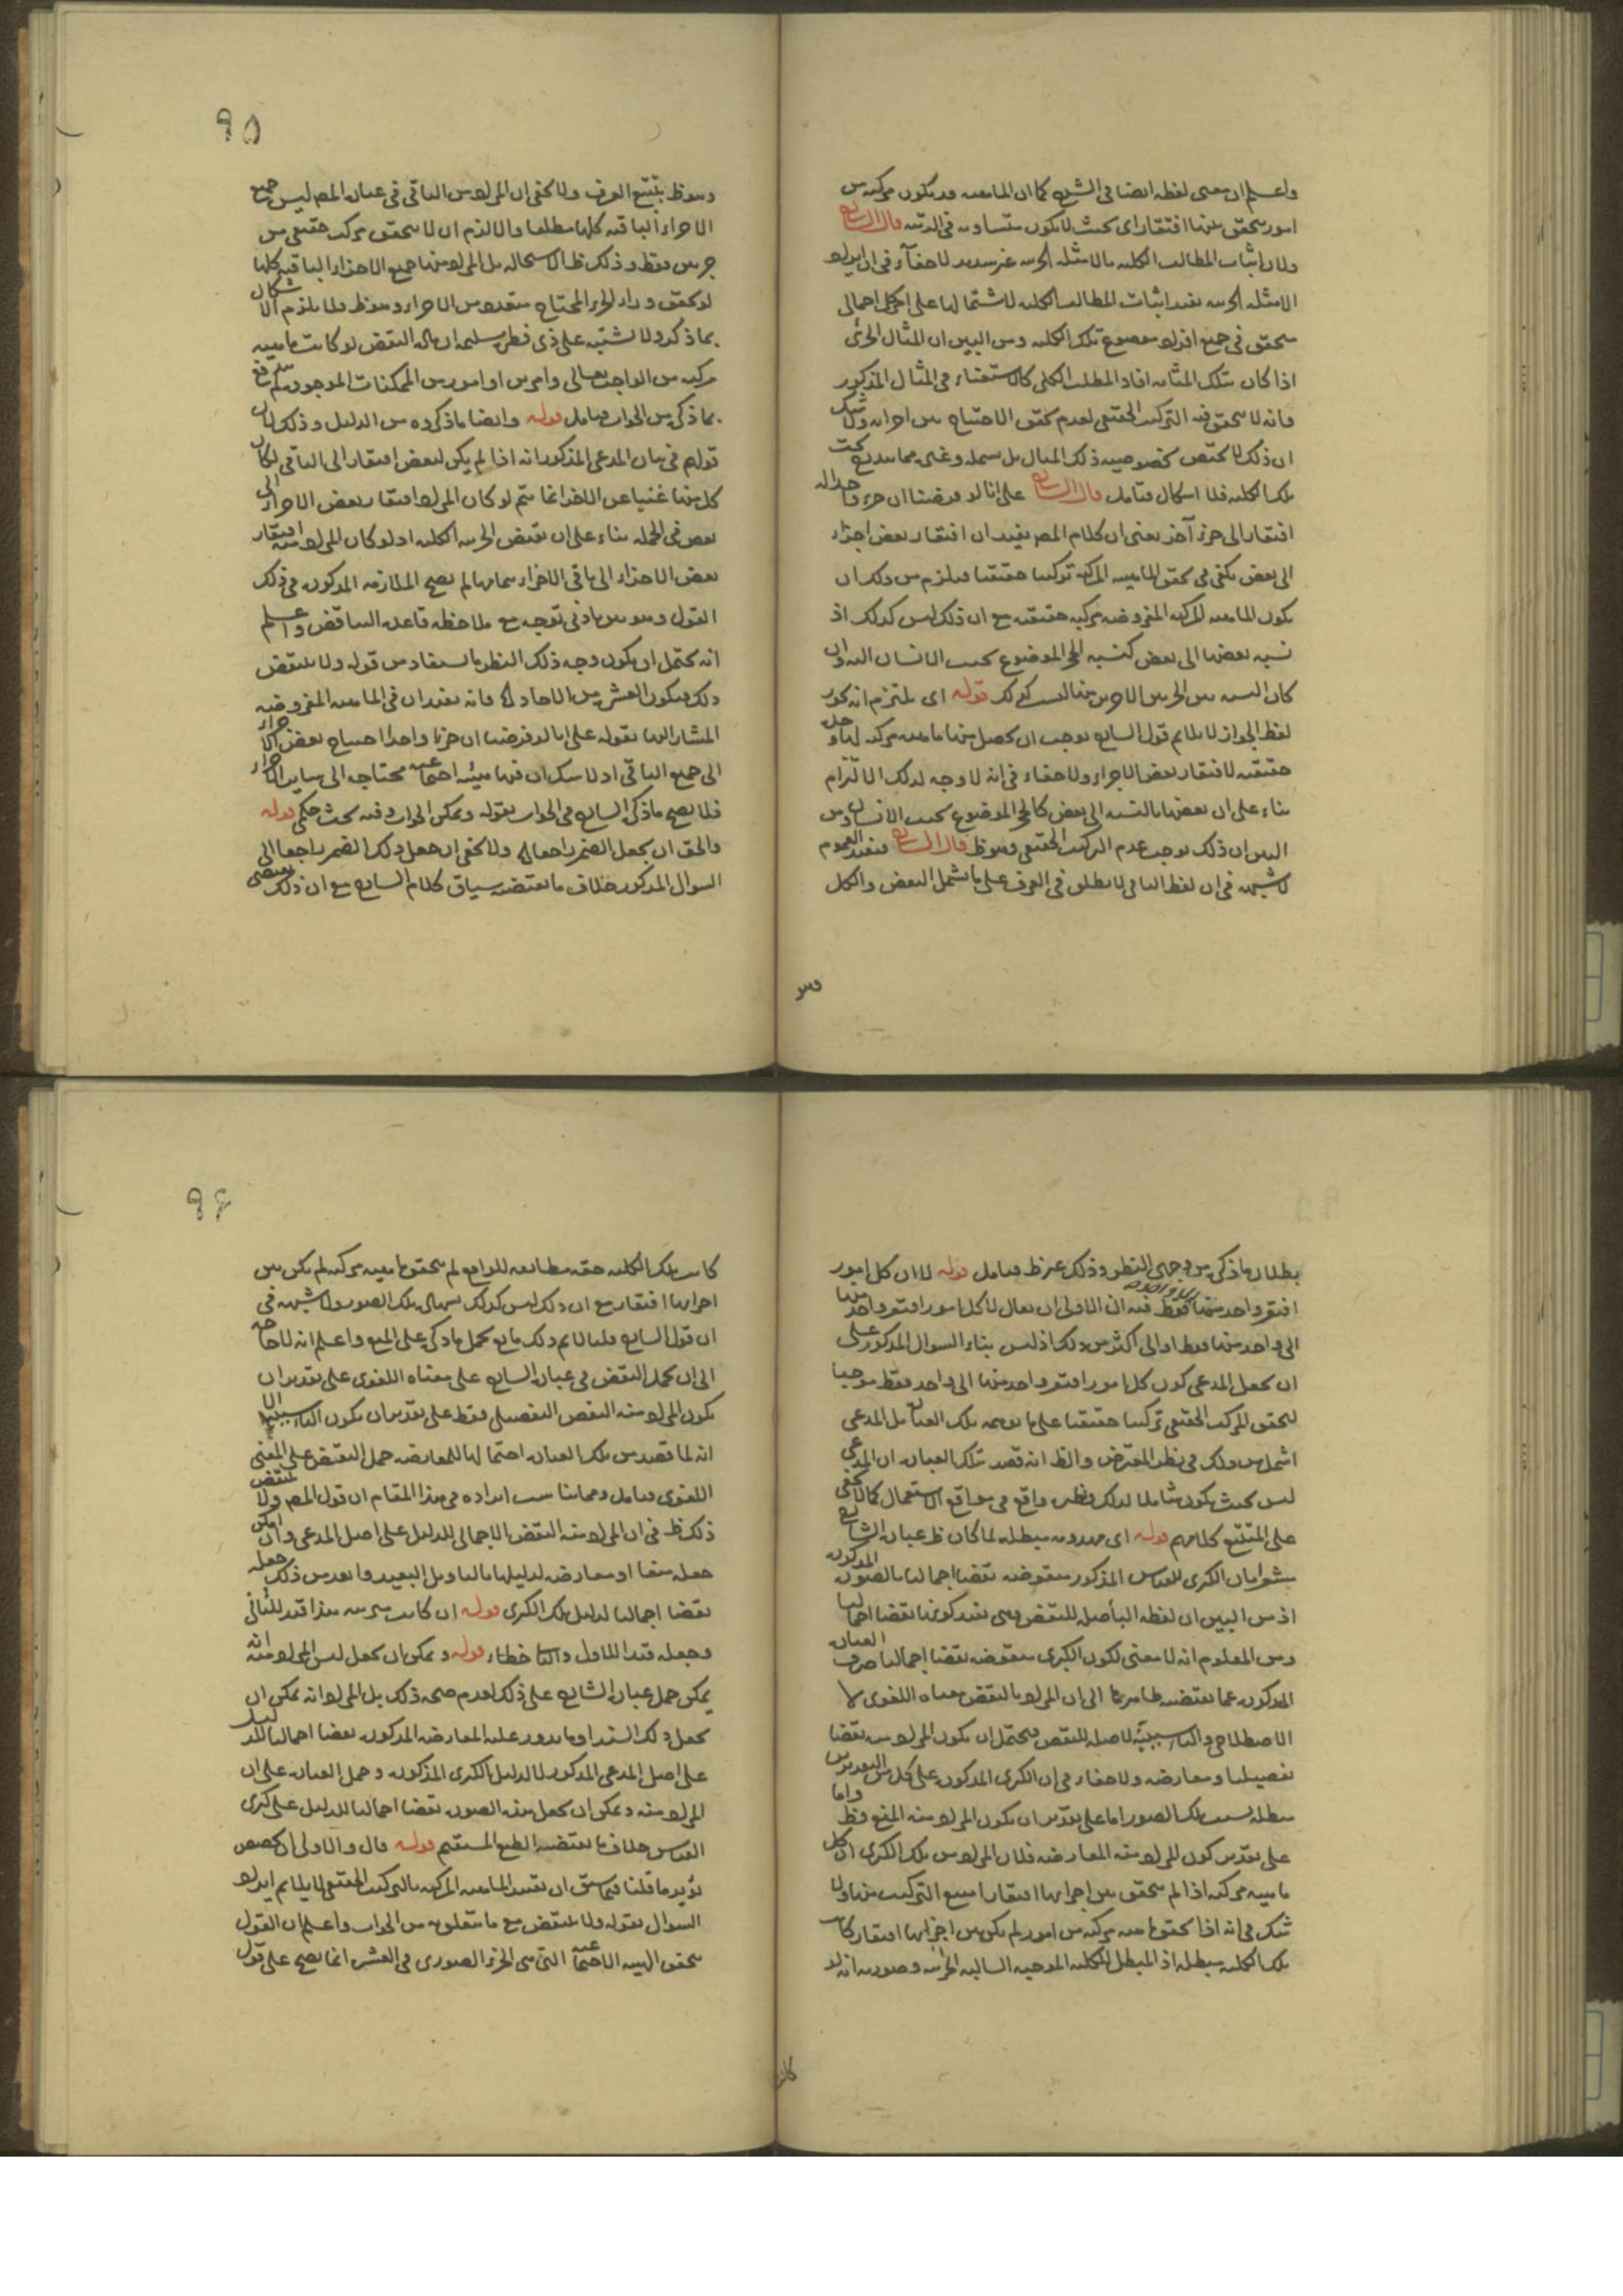 واعلم ان معنى لفظه ايضا فى الشرح كما ان الماهيه قد يكون مركبه من
امور يتحقق بينها افتقار اى بحيث لا يكون متساويه فى الرتبه قال الشارح
ولان اثبات المطالب الكليه بالامثله الجزئيه غير سديد لا خفآء فى ان ايراد
الامثله الجزئيه يفيد اثبات المطالب الكليه لاشتمالها على اجمالى
يتحقق فى جميع افراد موضوع تلك الكليه ومن البين ان المثال الجزئى
اذا كان بتلك المثابه افاد المطلب الكلى كالاستغناء فى المثال المذكور
فانه لا يتحقق فيه التركيب الحقيقى لعدم تحقق الاحتياج بين اجزائه ولا شك
ان ذلك لا يختص بخصوصيه ذلك المثال بل يشمله وغيره مما يندرج تحت
تلك الكليه فلا اشكال فتامل قال الشارح على انا لو فرضنا ان جزء واحدا له
افتقار الى جزء آخر يعنى ان كلام المصـ يفيد ان افتقار بعض اجزاء
الى بعض يكفى فى تحقق الماهيه المركبه تركيبا حقيقيا فيلزم من ذلك ان
يكون الماهيه المركبه المفروضه مركبه حقيقيه مع ان ذلك ليس كذلك اذ
نسبه بعضها الى بعض كنسبه الحجر الموضوع بجنب الانسان اليه وان
كان النسبه بين الجزئين الاخرين منها ليست كذلك قوله اى يلتزم انه يجوز
لفظ الجواز لا يلايم قول الشارح يوجب ان يحصل منها ماهيه مركبه لها وحده
حقيقيه لافتقار بعض الاجزاء ولا خفاء فى انه لا وجه لذلك الالتزام
بناء على ان بعضها بالنسبه الى بعض كالحجر الموضوع بجنب الانسان ومن
البين ان ذلك يوجب عدم التركيب الحقيقى وهو ظ قال الشارح فيفيد العموم
لا شبهه فى ان لفظ الباقى لا يطلق فى العرف على ما يشمل البعض والكل
وهو
٩٥
وهو ظ بتتبع العرف ولا يخفى ان المراد من الباقى فى عباره المصـ ليس جميع
الاجزاء الباقيه كلها مطلقا والا لزم ان لا يتحقق مركب حقيقى من
جزئين فقط وذلك ظ الاستحاله بل المراد منها جميع الاجزاء الباقيه كلها
لو تحقق وراء الجزء المحتاج متعدد من الاجزاء وهو ظ ولا يلزم الاشكال
بما ذكر ولا يشتبه على ذى فطره سليمه ان ماله النقض لو كانت ماهيه
مركبه من الواجب تعالى وامر من او امور من الممكنات الموجوده
بما ذكر من الجواب فتامل قوله وايضا ما ذكروه من الدليل وذلك لان
قولهم فى بيان المدعى المذكور انه اذا لم يكن لبعض افتقار الى الباقى لكان
كل منها غنيا عن الاخر انما يتم لو كان المراد افتقار بعض الاجزاء الى
بعض فى الجمله بناء على ان نقيض الجزئيه الكليه اذ لو كان المراد منه افتقار
بعض الاجزاء الى باقى الاجزاء تمامها لم يصح الملازمه المذكوره فى ذلك
القول وهو بين بادنى توجه مع ملاحظه قاعده التناقض واعلم
انه يحتمل ان يكون وجه ذلك النظر ما يستفاد من قوله ولا ينتقض
ذلك بكون العشره من الاحاد فانه يفيد ان فى الماهيه المفروضه
المشار اليها بقوله على انا لو فرضنا ان جزءا واحدا احتياج بعض الاجزاء
الى جميع الباقى اذ لا شك ان فيها هيئه اجتماعيه محتاجه الى ساير الاجزاء
فلا يصح ما ذكره الشارح فى الجواب بقوله ويمكن الجواب وفيه بحث حكمى قوله
والحق ان يجعل الضمير راجعا ولا يخفى ان جعل ذلك الضمير راجعا الى
السوال المذكور خلاف ما يقتضيه سياق كلام الشارح مع ان ذلك يقتضى
بطلان ما ذكره من وجهى النظر وذلك غير ظ فتامل قوله لا ان كل امور
افتقر واحد منها فقط فيه ان الاولى ان يقال لا كل امور افتقر واحد منها
الى واحد منها فقط او الى اكثر من ذلك اذ ليس بناء السوال المذكور على
ان يجعل المدعى كون كل امور افتقر واحد منها الى واحد فقط موجبا
لتحقق المركب الحقيقى تركيبا حقيقيا على ما يوهمه تلك العباره بل المدعى
اشمل من ذلك فى نظر المعترض والظ انه قصد بتلك العباره ان المدعى
ليس بحيث يكون شاملا لذلك ونظيره واقع فى مواقع الاستعمال كما لا يخفى
على المتتبع كلامهم قوله اى هذه مبطله لما كان ظ عباره الشارح
مشعرا بان الكبرى للقياس المذكور منقوضه نقضا اجماليا بالصوره المذكوره
اذ من البين ان لفظه البآ صله للنقض وهى يفيد كونها نقضا اجماليا
ومن المعلوم انه لا معنى لكون الكبرى منقوضه نقضا اجماليا صرف العباره
المذكوره عما يقتضيه ظاهرها الى ان المراد بالنقض معناه اللغوى لا
الاصطلاحى والبآء سببيّه لا صله للنقض فيحتمل ان يكون المراد منه نقضا
تفصيليا ومعارضه ولا خفاء فى ان الكبرى المذكوره على كل من التقديرين
مبطله بسبب تلك الصور اما على تقدير ان يكون المراد منه المنع فظ واما
على تقدير كون المراد منه المعارضه فلان المراد من تلك الكبرى ان كل
ماهيه مركبه اذا لم يتحقق بين اجزائها افتقار امتنع التركيب منها ولا
شك فى انه اذا تحقق ماهيه مركبه من امور لم يكن بين اجزائها افتقار كانت
تلك الكليه مبطله اذ المبطل للكليه الموجبه السالبه الجزئيه وصورته انه لو
كانت
٩٦
كانت تلك الكليه حقه مطابقه للواقع لم يتحقق ماهيه مركبه لم يكن بين
اجزائها افتقار مع ان ذلك ليس كذلك بتلك الصور ولا شبهه فى
ان قول الشارح قلنا لا يتم ذلك مانع يحمل ما ذكره على المنع واعلم انه لا حاجه
الى ان يحمل النقض فى عباره الشارح على معناه اللغوى على تقدير ان
يكون المراد منه النقض التفصيلى فقط على تقدير ان يكون البآء سببيه الا
انه لما قصد من تلك العباره احتمالها للمعارضه حمل النقض على المعنى
اللغوى فتامل ومما يناسب ايراده فى هذا المقام ان قول المصـ ولا ينتقض
ذلك ظ فى ان المراد منه النقض الاجمالى للدليل على اصل المدعى وان امكن
جعله منعا او معارضه لدليلها بالتاويل البعيد وابعد من ذلك جعله
نقضا اجماليا لدليل تلك الكبرى قوله ان كانت هذا قيد للثانى
وجعله قيدا للاول والثانى خطاء قوله ويمكن ان يجعل ليس المراد منه انه
يمكن حمل عباره الشارح على ذلك لعدم صحه ذلك بل المراد انه يمكن ان
يجعل ذلك السند او ما يدور عليه المعارضه المذكوره نقضا اجماليا لدليل
على اصل المدعى المذكور لا لدليل الكبرى المذكوره وحمل العباره على ان
المراد منه ويمكن ان يجعل هذه الصوره نقضا اجماليا للدليل على كبرى
القياس خلاف ما يقتضيه الطبع المستقيم قوله قال والاولى ان يخصص
يؤيد ما قلنا فيما سبق ان تقييد الماهيه المركبه بالتركيب الحقيقى لا يلايم ايراد
السوال بقوله ولا ينتقض مع ما يتعلق به من الجواب واعلم ان القول
بتحقق الهيئه الاجتماعيه التى هى الجزء الصورى فى العشره انما يصح على قول